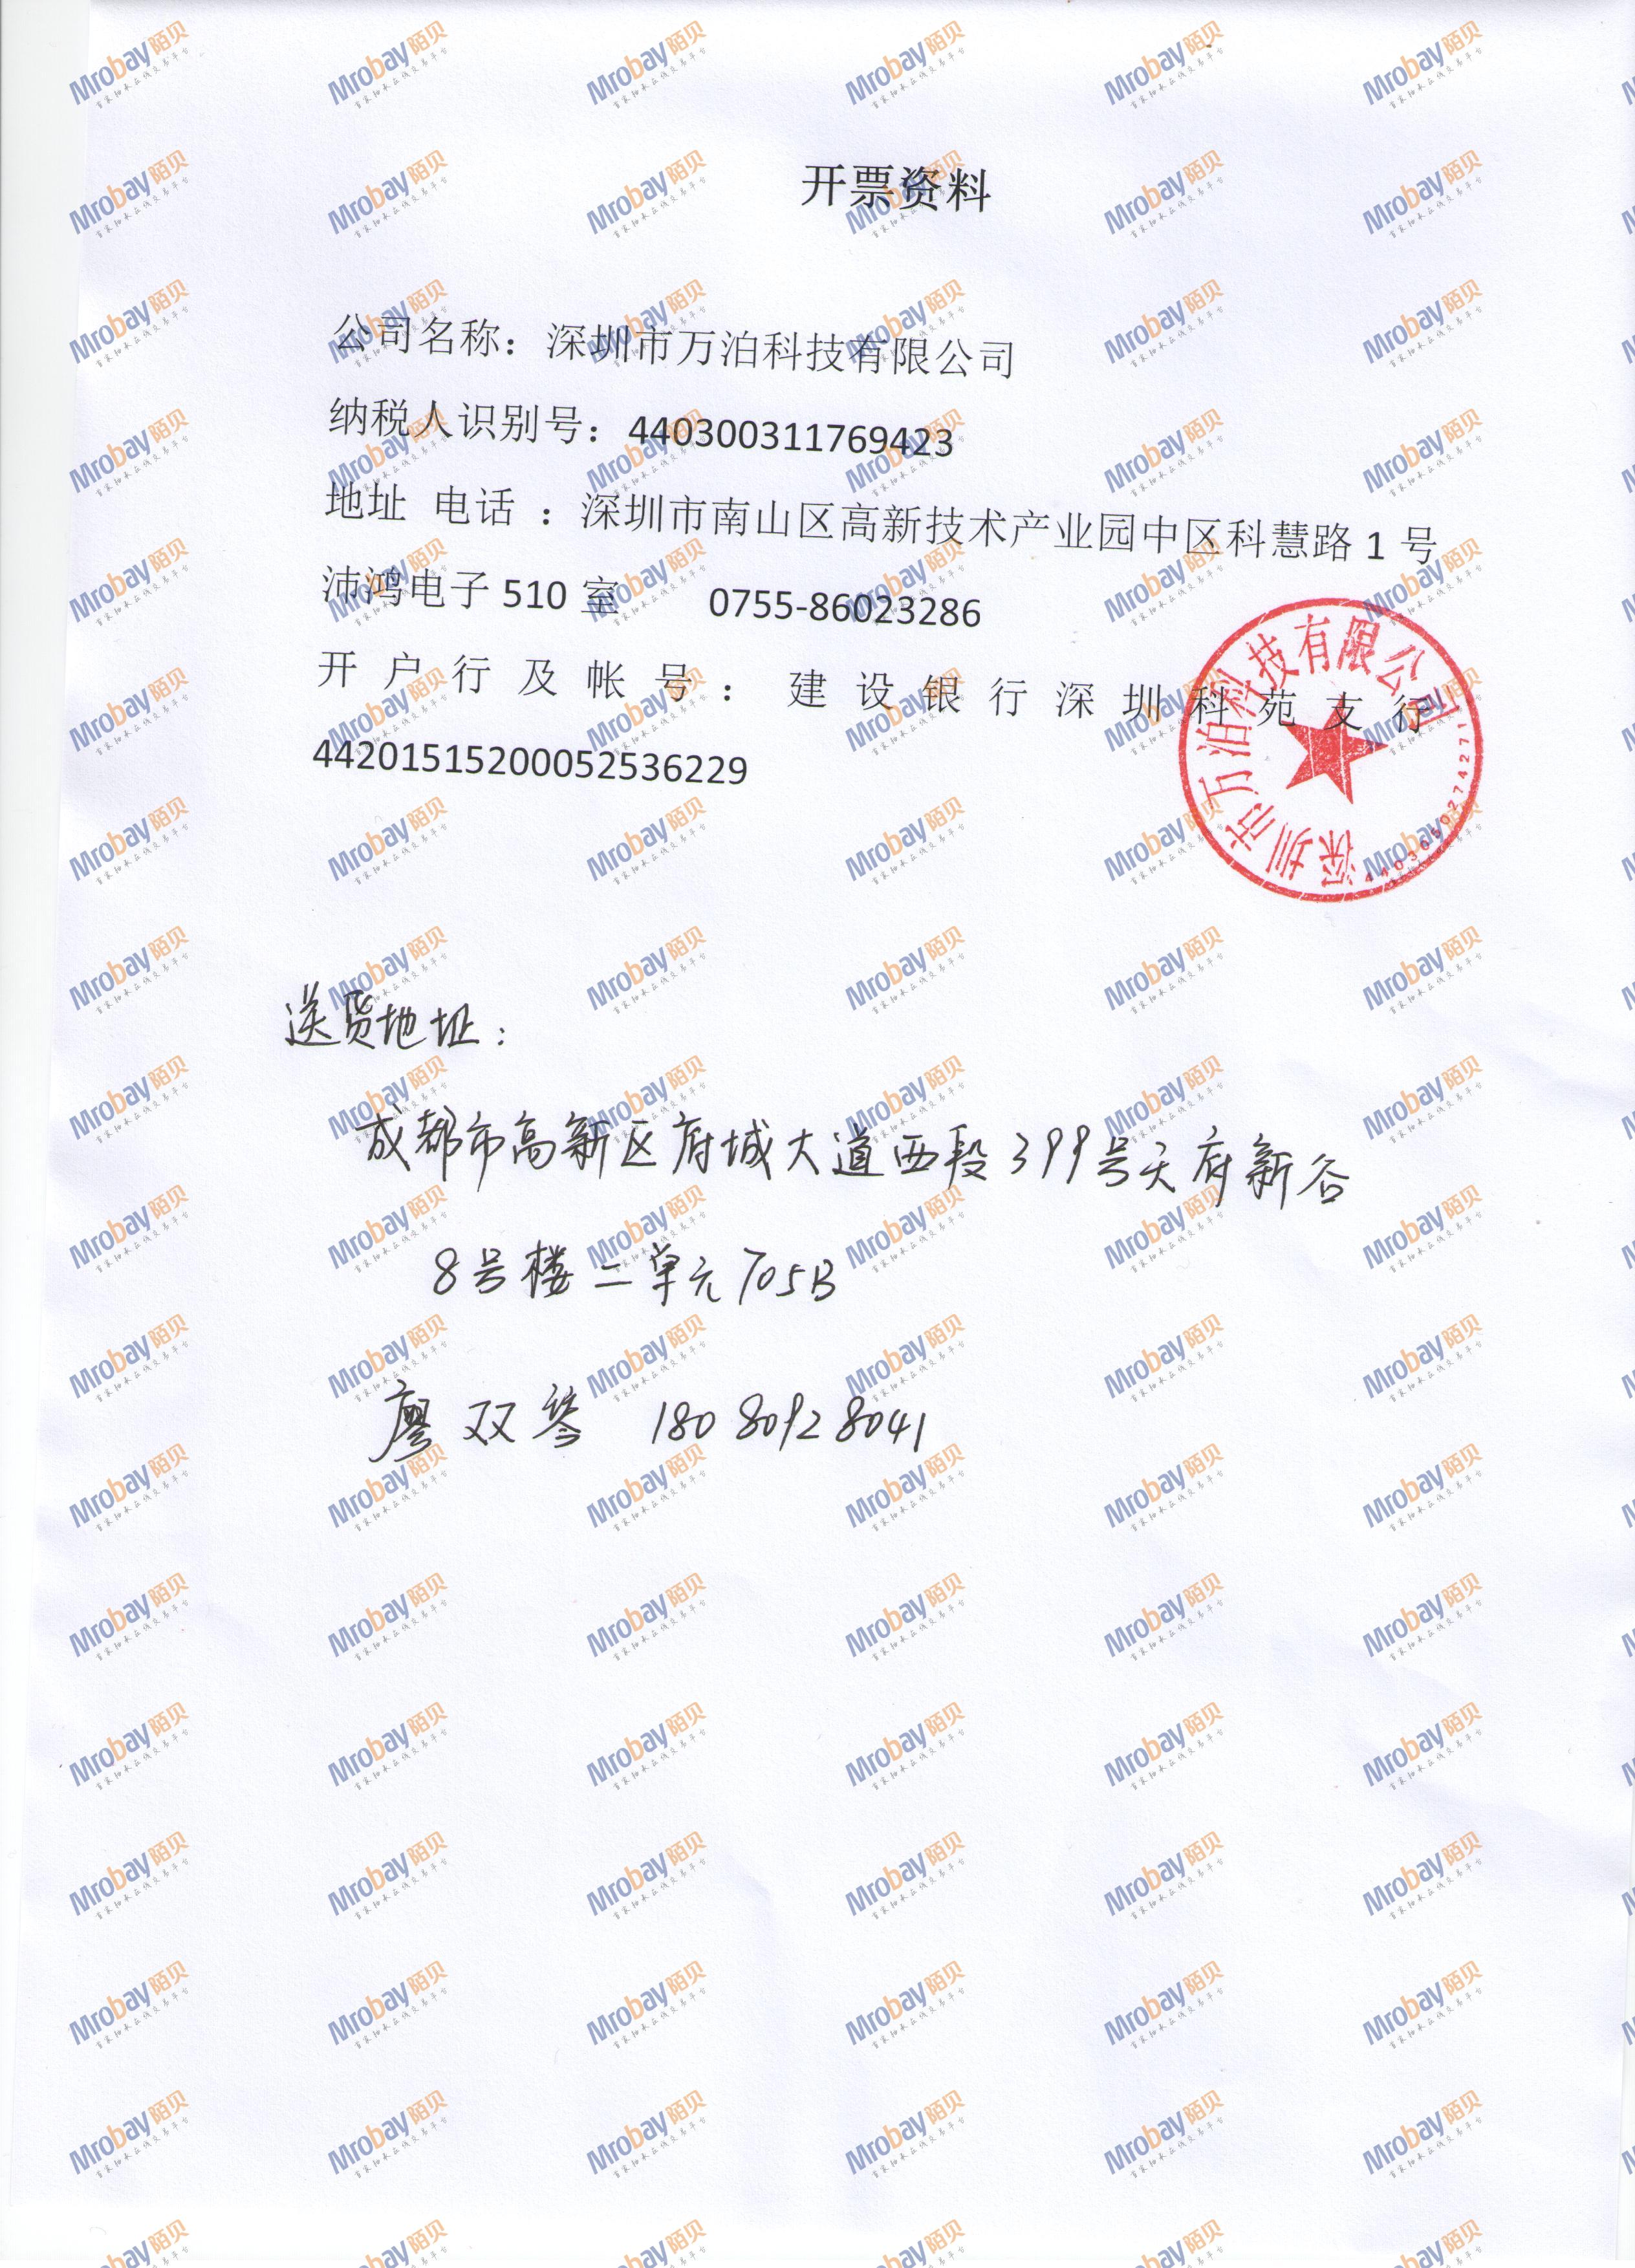 开票资料
公司名称：深圳市万泊科技有限公司
纳税人识别号：440300311769423
地址 电话 ：深圳市南山区高新技术产业园中区科慧路 1 号
沛鸿电子 510 室 0755-86023286
开户行及帐号：建设银行深圳科苑支行
44201515200052536229
深圳市万泊科技有限公司
送货地址：
成都市高新区府城大道西段399号天府新谷
8号楼二单元705B
廖双琴 18080928041
Mrobay陌贝